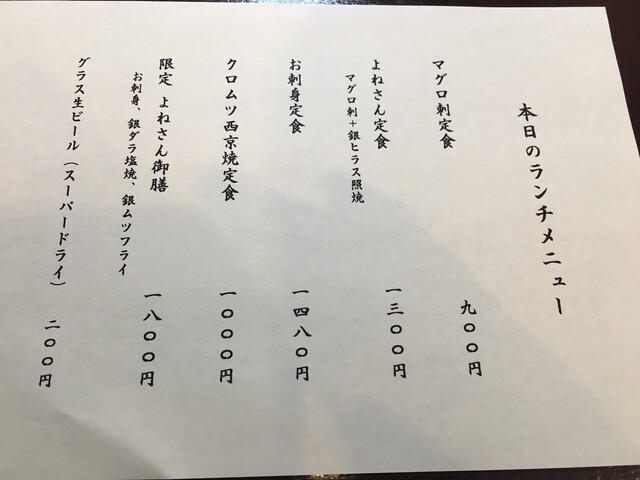 本日のランチメニュー
マグロ刺定食 九〇〇円
よねさん定食 一三〇〇円
マグロ刺+銀ヒラス照焼
お刺身定食 一四八〇円
クロムツ西京焼定食 一〇〇〇円
限定 よねさん御膳 一八〇〇円
お刺身、銀ダラ塩焼、銀ムツフライ
グラス生ビール(スーパードライ) 二〇〇円